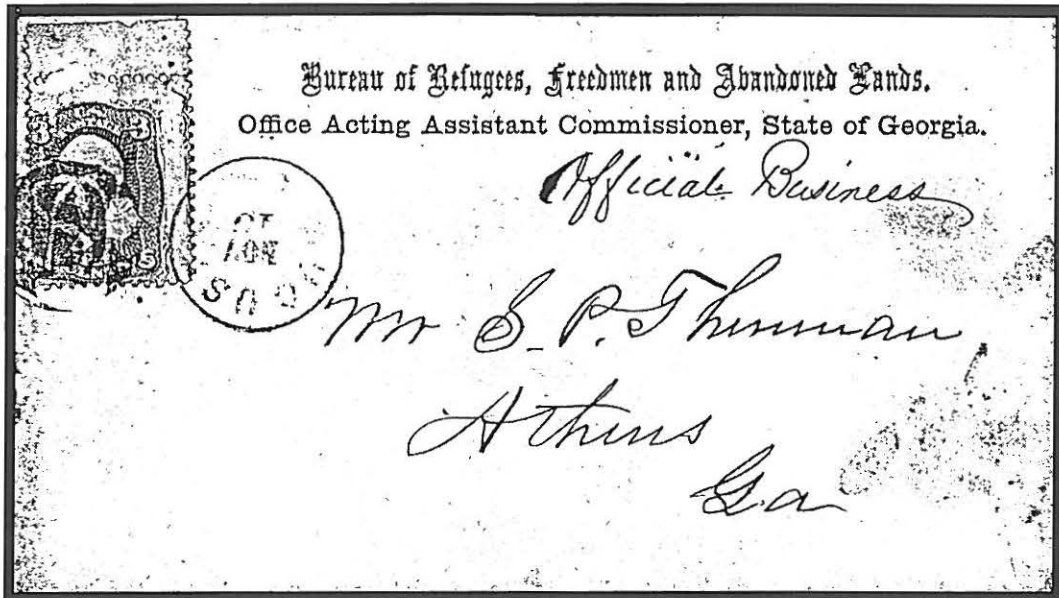 Bureau of Refugees, Freedmen and Abandoned Lands.
Office Acting Assistant Commissioner, State of Georgia.
Official Business
NOV
Mr S. P. Thurman
Athens
Ga